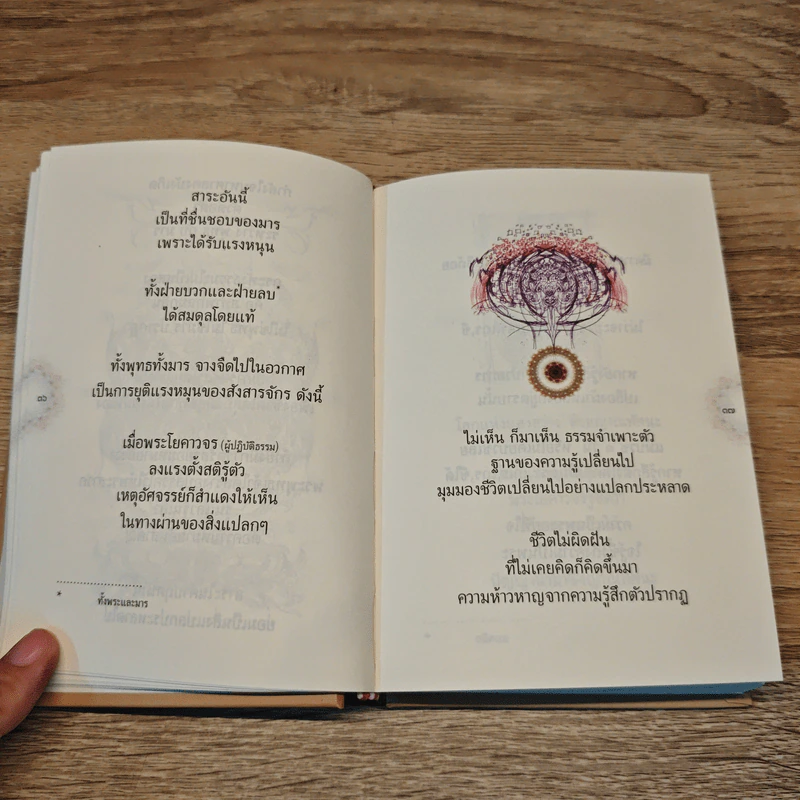 สาระอันนี้
เป็นที่ชื่นชอบของมาร
เพราะได้รับแรงหนุน
ทั้งฝ่ายบวกและฝ่ายลบ*
ได้สมดุลโดยแท้
ทั้งพุทธทั้งมาร จางจืดไปในอวกาศ
เป็นการยุติแรงหมุนของสังสารจักร ดังนี้
เมื่อพระโยคาวจร (ผู้ปฏิบัติธรรม)
ลงแรงตั้งสติรู้ตัว
เหตุอัศจรรย์ก็สำแดงให้เห็น
ในทางผ่านของสิ่งแปลกๆ
* ทั้งพระและมาร
ไม่เห็น ก็มาเห็น ธรรมจำเพาะตัว
ฐานของความรู้เปลี่ยนไป
มุมมองชีวิตเปลี่ยนไปอย่างแปลกประหลาด
ชีวิตไม่ผิดฝัน
ที่ไม่เคยคิดก็คิดขึ้นมา
ความห้าวหาญจากความรู้สึกตัวปรากฏ
๓๗